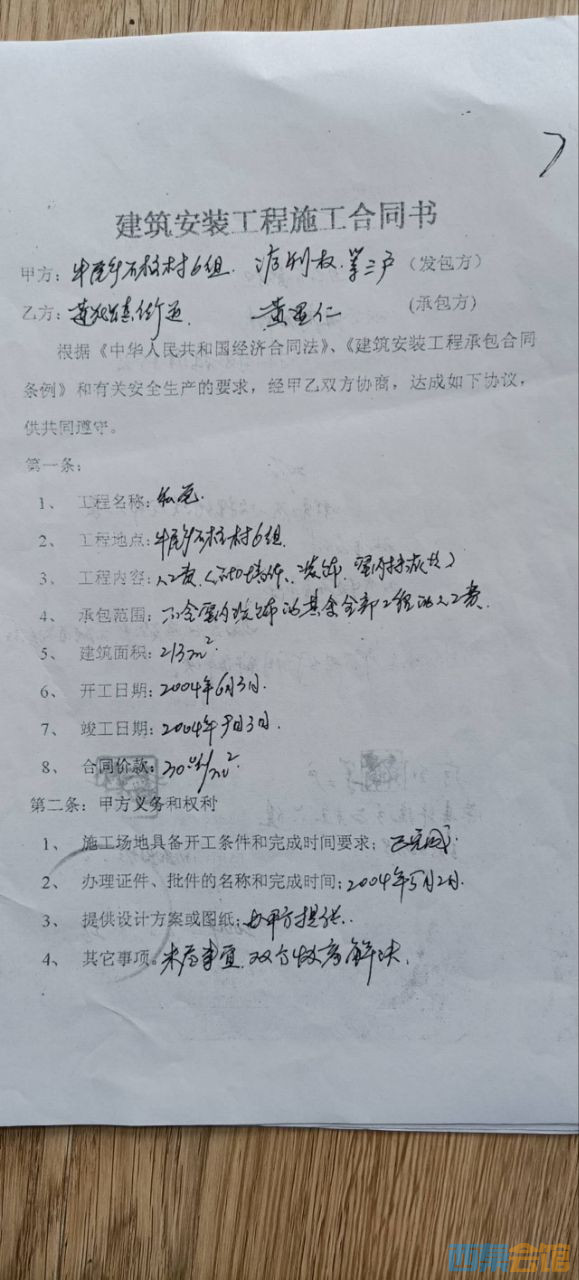 建筑安装工程施工合同书
甲方：牛尾乡石柱村6组. 权. 等三户（发包方）
乙方： 黄 仁（承包方）
根据《中华人民共和国经济合同法》、《建筑安装工程承包合同
条例》和有关安全生产的要求，经甲乙双方协商，达成如下协议，
供共同遵守。
第一条：
1、 工程名称：
2、 工程地点：牛尾乡石柱村6组.
3、 工程内容：人工费
4、 承包范围：不含室内 的其余全部工程的人工费.
5、 建筑面积：213m²
6、 开工日期：2004年6月3日.
7、 竣工日期：2004年 月3日.
8、 合同价款： /m²
第二条：甲方义务和权利
1、 施工场地具备开工条件和完成时间要求；已完成.
2、 办理证件、批件的名称和完成时间；2004年5月2日.
3、 提供设计方案或图纸；由甲方提供.
4、 其它事项。未尽事宜.双方 解决.
西祠会馆